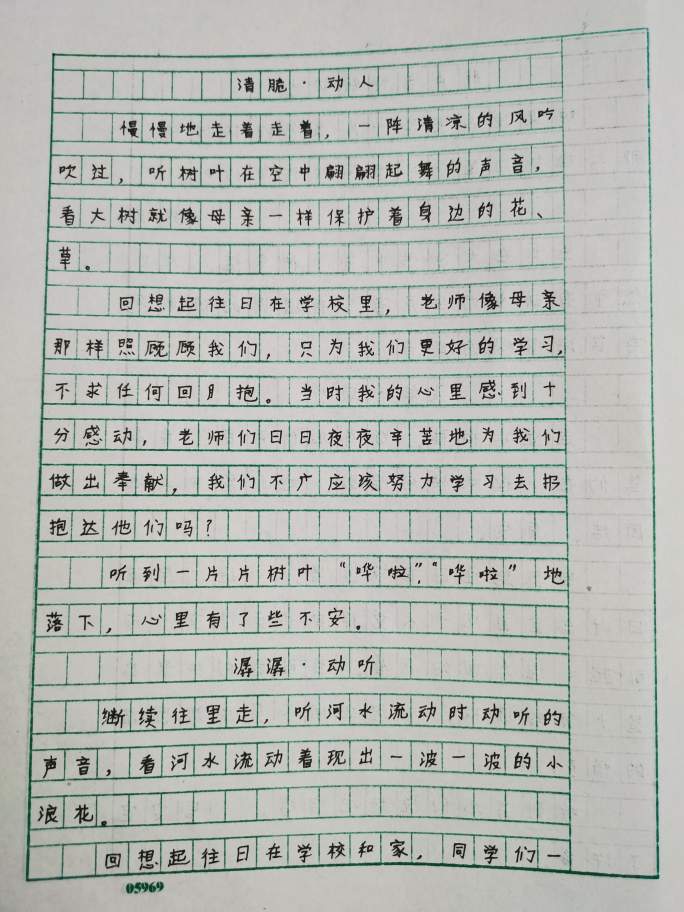 清脆·动人
慢慢地走着走着，一阵清凉的风吟
吹过，听树叶在空中翩翩起舞的声音，
看大树就像母亲一样保护着身边的花、
草。
回想起往日在学校里，老师像母亲
那样照顾顾我们，只为我们更好的学习，
不求任何回抱。当时我的心里感到十
分感动，老师们日日夜夜辛苦地为我们
做出奉献，我们不广应该努力学习去报
抱达他们吗？
听到一片片树叶“哗啦”“哗啦”地
落下，心里有了些不安。
潺潺·动听
续往里走，听河水流动时动听的
声音，看河水流动着现出一波一波的小
浪花。
回想起往日在学校和家，同学们一
05969